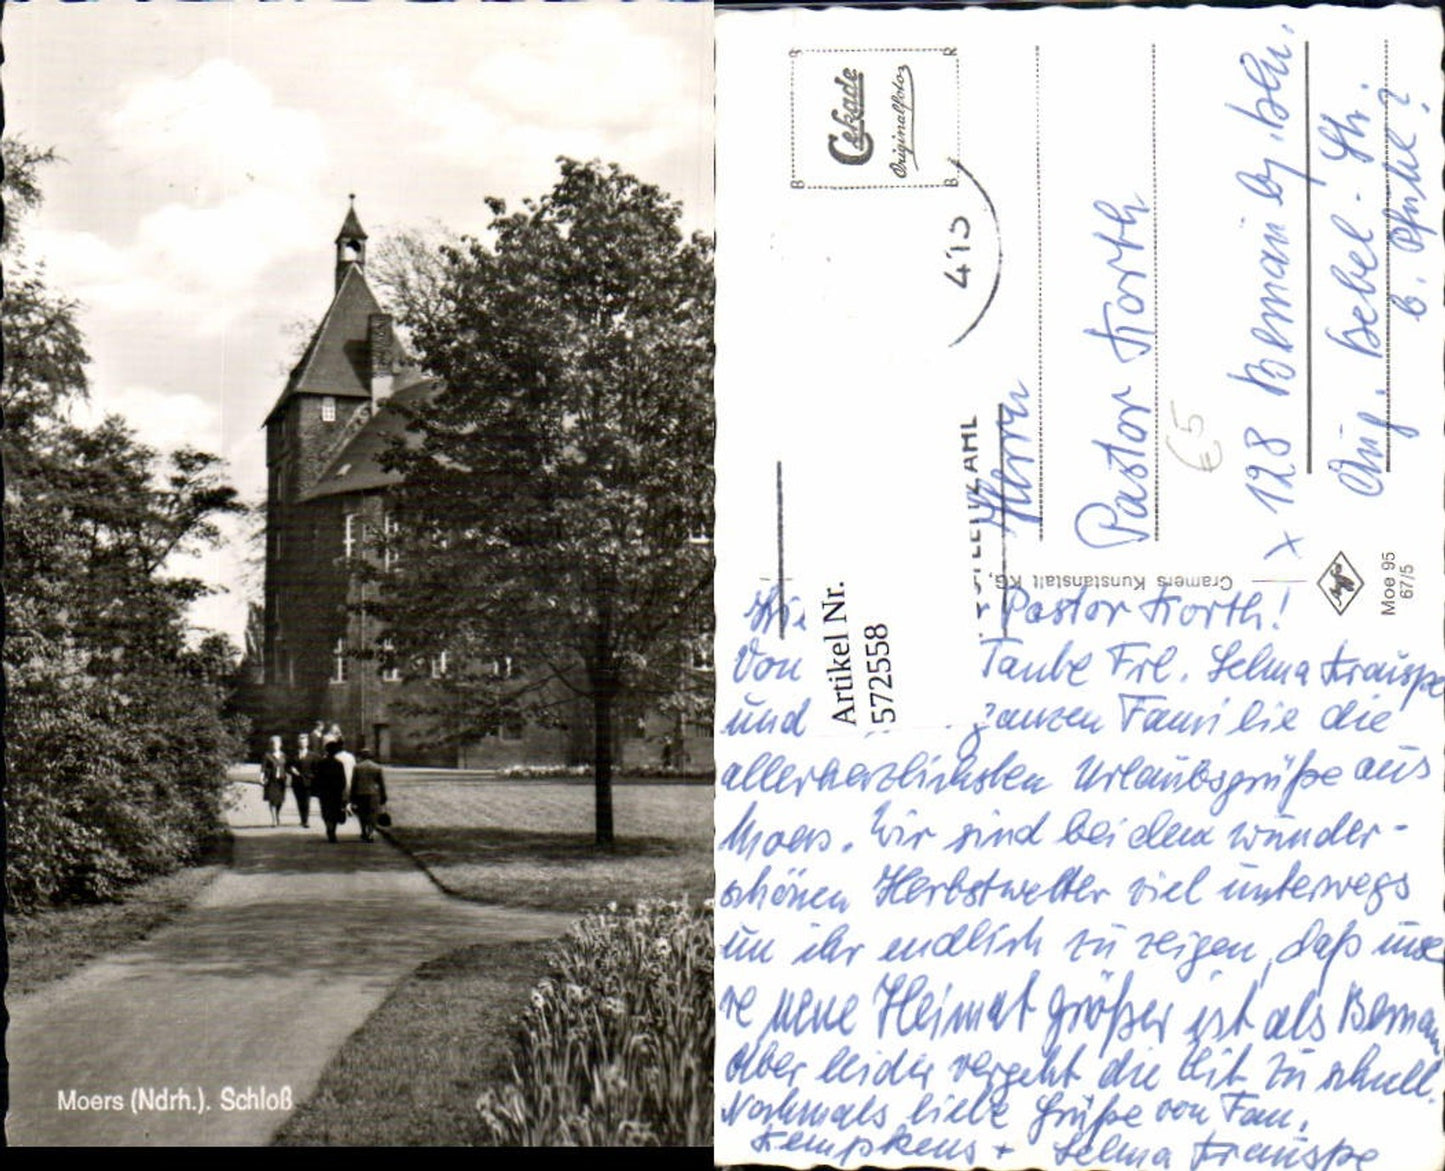 Moers (Ndrh.). Schloß
Cekade
Originalfoto
4.13
Herrn
Pastor Korth
x 128 Bernau by. Bln.
Aug. Bebel-Str.
€5
Cramers Kunstanstalt KG,
Agfa
Moe 95
67/5
Artikel Nr.
572558
Pastor Korth!
Von Taube Frl. Selma Krauspe
und ganzen Familie die
allerherzlichsten Urlaubsgrüße aus
Moers. Wir sind bei dem wunder-
schönen Herbstwetter viel unterwegs
um ihr endlich zu zeigen, daß unse
re neue Heimat größer ist als Bernau
Aber leider vergeht die Zeit zu schnell.
Nochmals liebe Grüße von Fam.
Kempkens + Selma Krauspe